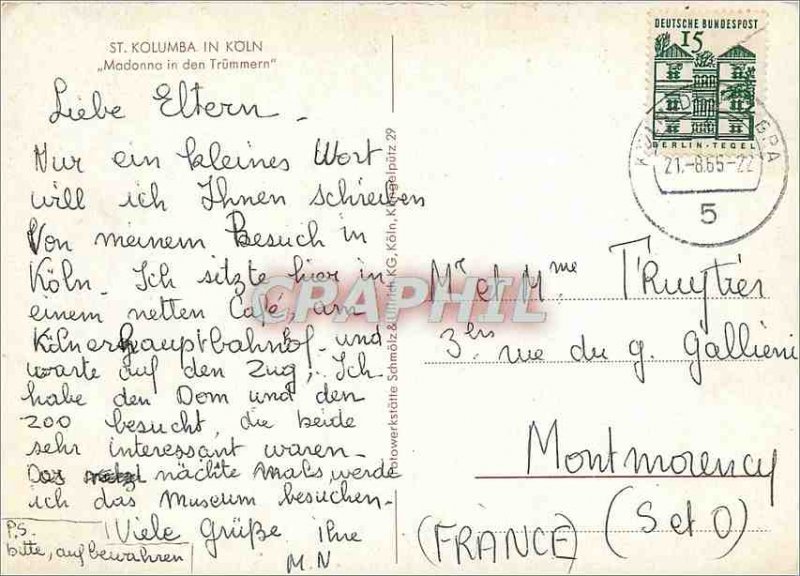 ST. KOLUMBA IN KÖLN
„Madonna in den Trümmern"
Liebe Eltern -
Nur ein kleines Wort
will ich Ihnen schreiben
Von meinem Besuch in
Köln. Ich sitzte hier in
einem netten Café, am
Kölnerhauptbahnhof und
warte auf den Zug; Ich
habe den Dom und den
zoo besucht, die beide
sehr interessant waren -
Das nächte Mals werde
ich das Museum besuchen -
Viele Grüße Ihre
M.N
P.S.
bitte, aufbewahren
Fotowerkstätte Schmölz & Ullrich KG, Köln, Klingelpütz 29
CPAPHIL
DEUTSCHE BUNDESPOST
15
BERLIN-TEGEL
21.-8.65-22
5
Mr et Mme Truytier
3bis rue du g. Gallieni
Montmorency
(S et O)
(FRANCE)